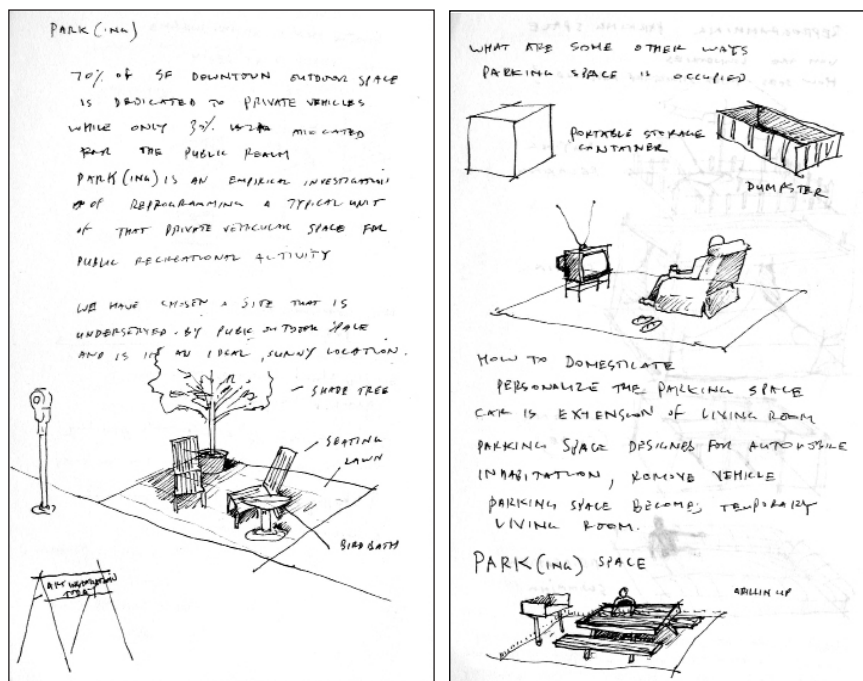 PARK(ING)
70% OF SF DOWNTOWN OUTDOOR SPACE
IS DEDICATED TO PRIVATE VEHICLES
WHILE ONLY 30% ALLOCATED
FOR THE PUBLIC REALM
PARK(ING) IS AN EMPIRICAL INVESTIGATION
OF REPROGRAMMING A TYPICAL UNIT
OF THAT PRIVATE VEHICULAR SPACE FOR
PUBLIC RECREATIONAL ACTIVITY
WE HAVE CHOSEN A SITE THAT IS
UNDERSERVED BY PUBLIC OUTDOOR SPACE
AND IS IN AN IDEAL, SUNNY LOCATION.
SHADE TREE
SEATING
LAWN
BIRD BATH
ART INSTALLATION
WHAT ARE SOME OTHER WAYS
PARKING SPACE IS OCCUPIED
PORTABLE STORAGE
CONTAINER
DUMPSTER
HOW TO DOMESTICATE
PERSONALIZE THE PARKING SPACE
CAR IS EXTENSION OF LIVING ROOM
PARKING SPACE DESIGNED FOR AUTOMOBILE
INHABITATION, REMOVE VEHICLE
PARKING SPACE BECOMES TEMPORARY
LIVING ROOM.
PARK(ING) SPACE